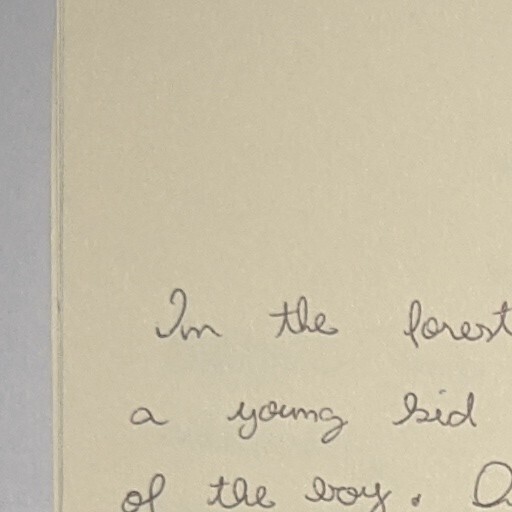 In the forest
a young kid
of the boy.